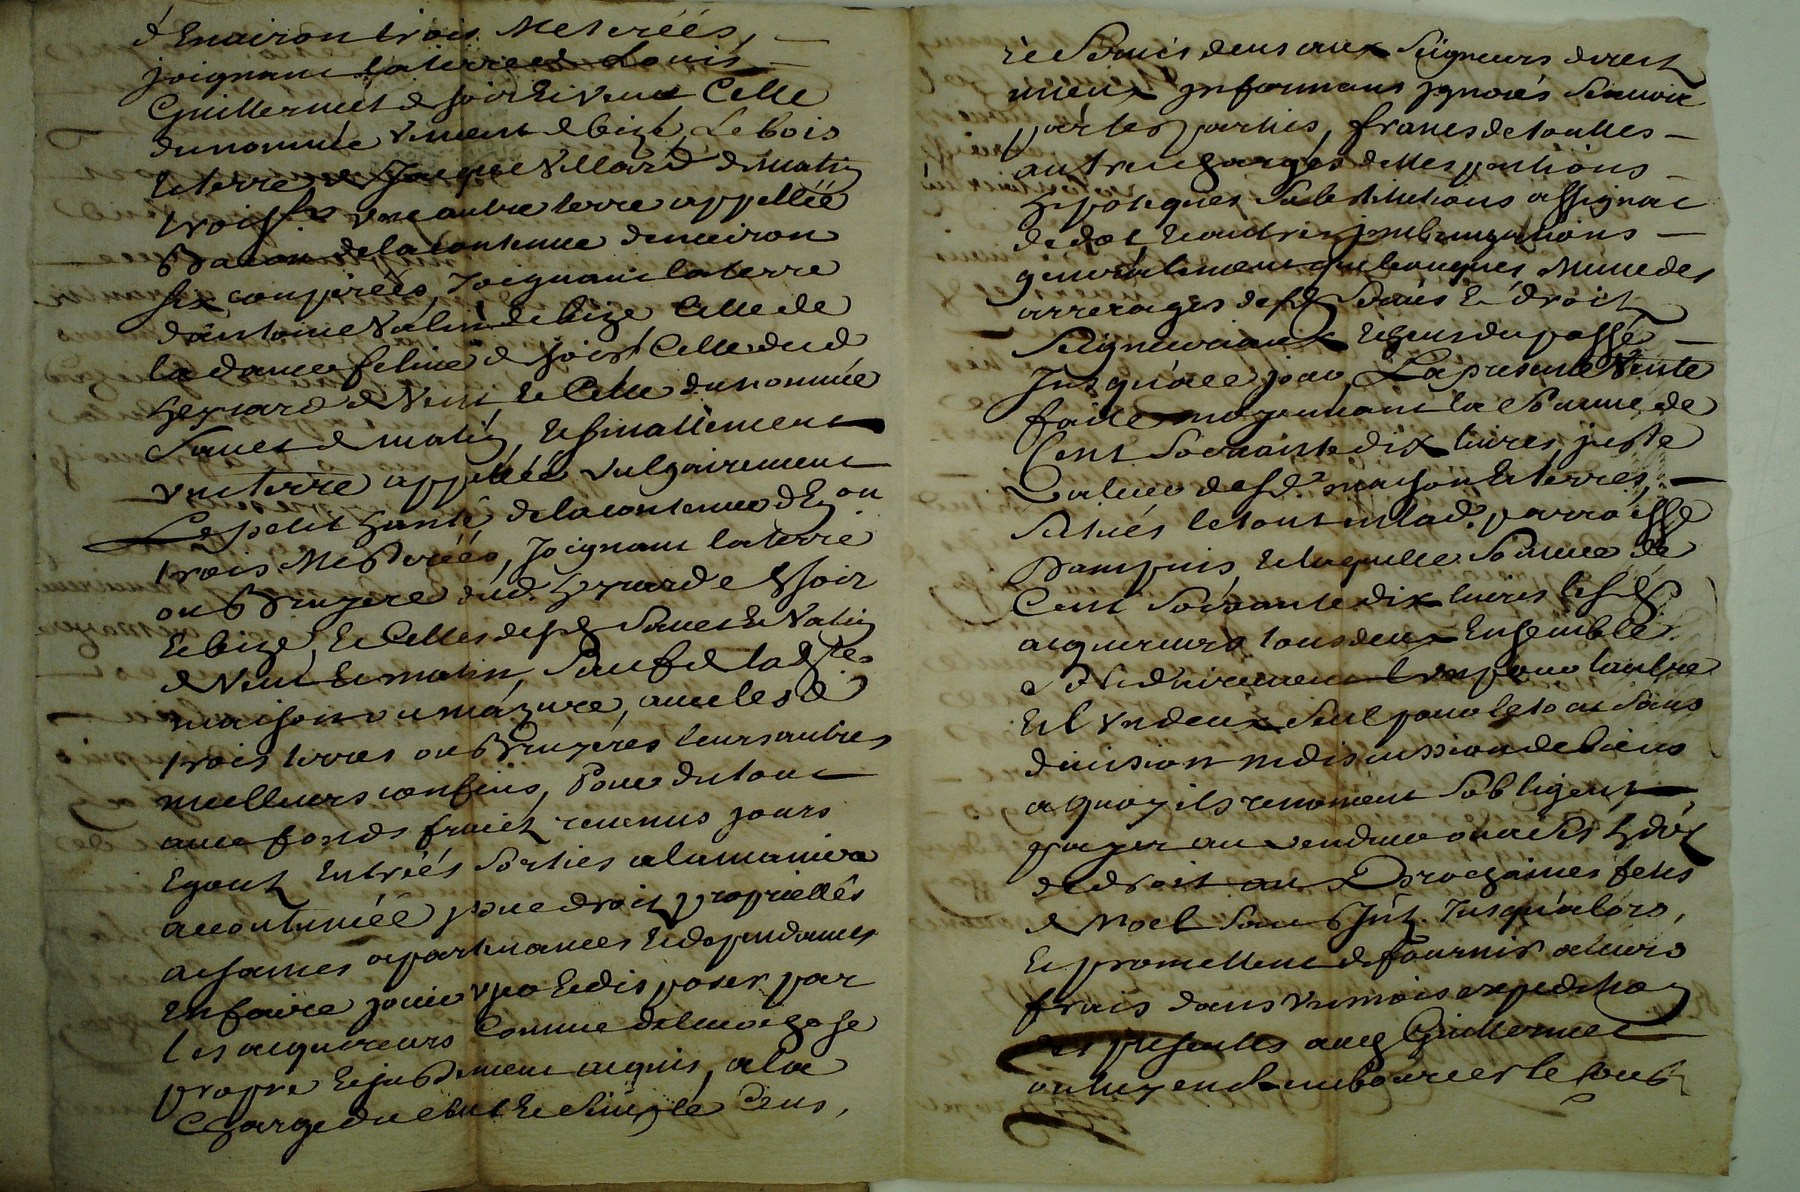 d'Enairon trois Meterées,
joignant la terre de Louis
Guillermet de soir & vent Celle
du nommé Vincent de bize, Le bois
& terre de Jacque Villard de matin
trois. une autre terre appellée
de la contenue denviron
six couperées, Joignant la terre
d'antoine de bize Celle de
la dame feline de soir, Celle dud
de Vent & Celle du nommée
de matin, & finallement
une terre appellée vulgairement
Le petit de la contenue d'En.on
trois Mesterées, Joignant la terre
ou Bruyere dud. de soir
& bize, & Celles desd
de Vent & matin, Sauf de lad.
maison ou mazure, avec lesd
trois terres ou Bruyeres leurs autres
meilleurs confins, Pour du tout
avec fonds fruicts revenus jours
Egouts Entrées Sorties a la maniere
accoutumée pour droits proprietés
aysances apartenances & dependances
En faire jouir user & disposer par
les acquereurs Comme de leur chose
propre & justement acquis, a la
Charge du Cens,
& Servis deus aux Seigneurs directs
mieux Informans ignorés Scauoir
par les parties, francs de touttes
autres charges dettes pentions
hipoteques Substitutions assignat
de dot & autres
generalement quelconques Mume des
arrerages desd Servis & droits
Seigneuriaux & Cens du passé
Jusqu'a ce jour, La presente Vente
faite moyennant la Somme de
Cent Soixante dix livres, juste
Valeur desd. maison & terres,
Situés le tout en lad. parroisse
& laquelle Somme de
Cent Soixante dix livres lesd.
acquereurs tous deux Ensemble
Solidairement l'un pour l'autre
& l'un deux Seul pour le tout Sans
division ni discussion de biens
a quoy ils renoncent S'obligent
payer au vendeur ou a Ses
de droit aux Prochaines fetes
de Noel Sans Jusqu'alors,
& promettent de fournir a leurs
frais dans un mois expedition
des presentes aud Guillermet
ou luy en rembourcer le Cout